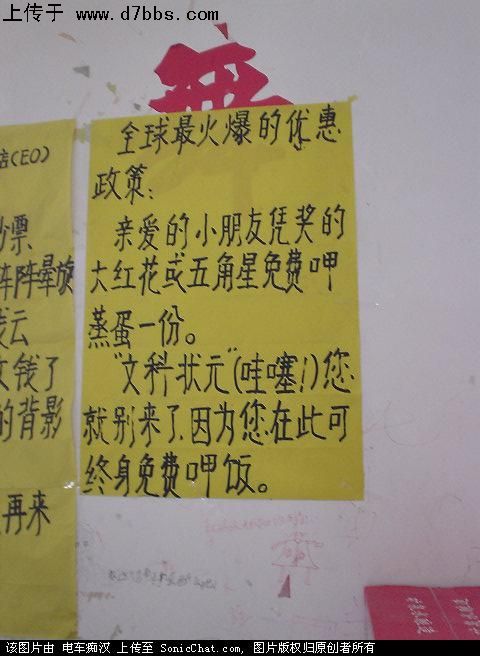 上传于 www.d7bbs.com
(EO)
票
阵阵晕旋
云
钱了
的背影
再来
全球最火爆的优惠
政策:
亲爱的小朋友凭奖的
大红花或五角星免费呷
蒸蛋一份。
"文科状元"(哇噻!)您
就别来了,因为您在此可
终身免费呷饭。
该图片由 电车痴汉 上传至 SonicChat.com, 图片版权归原创者所有